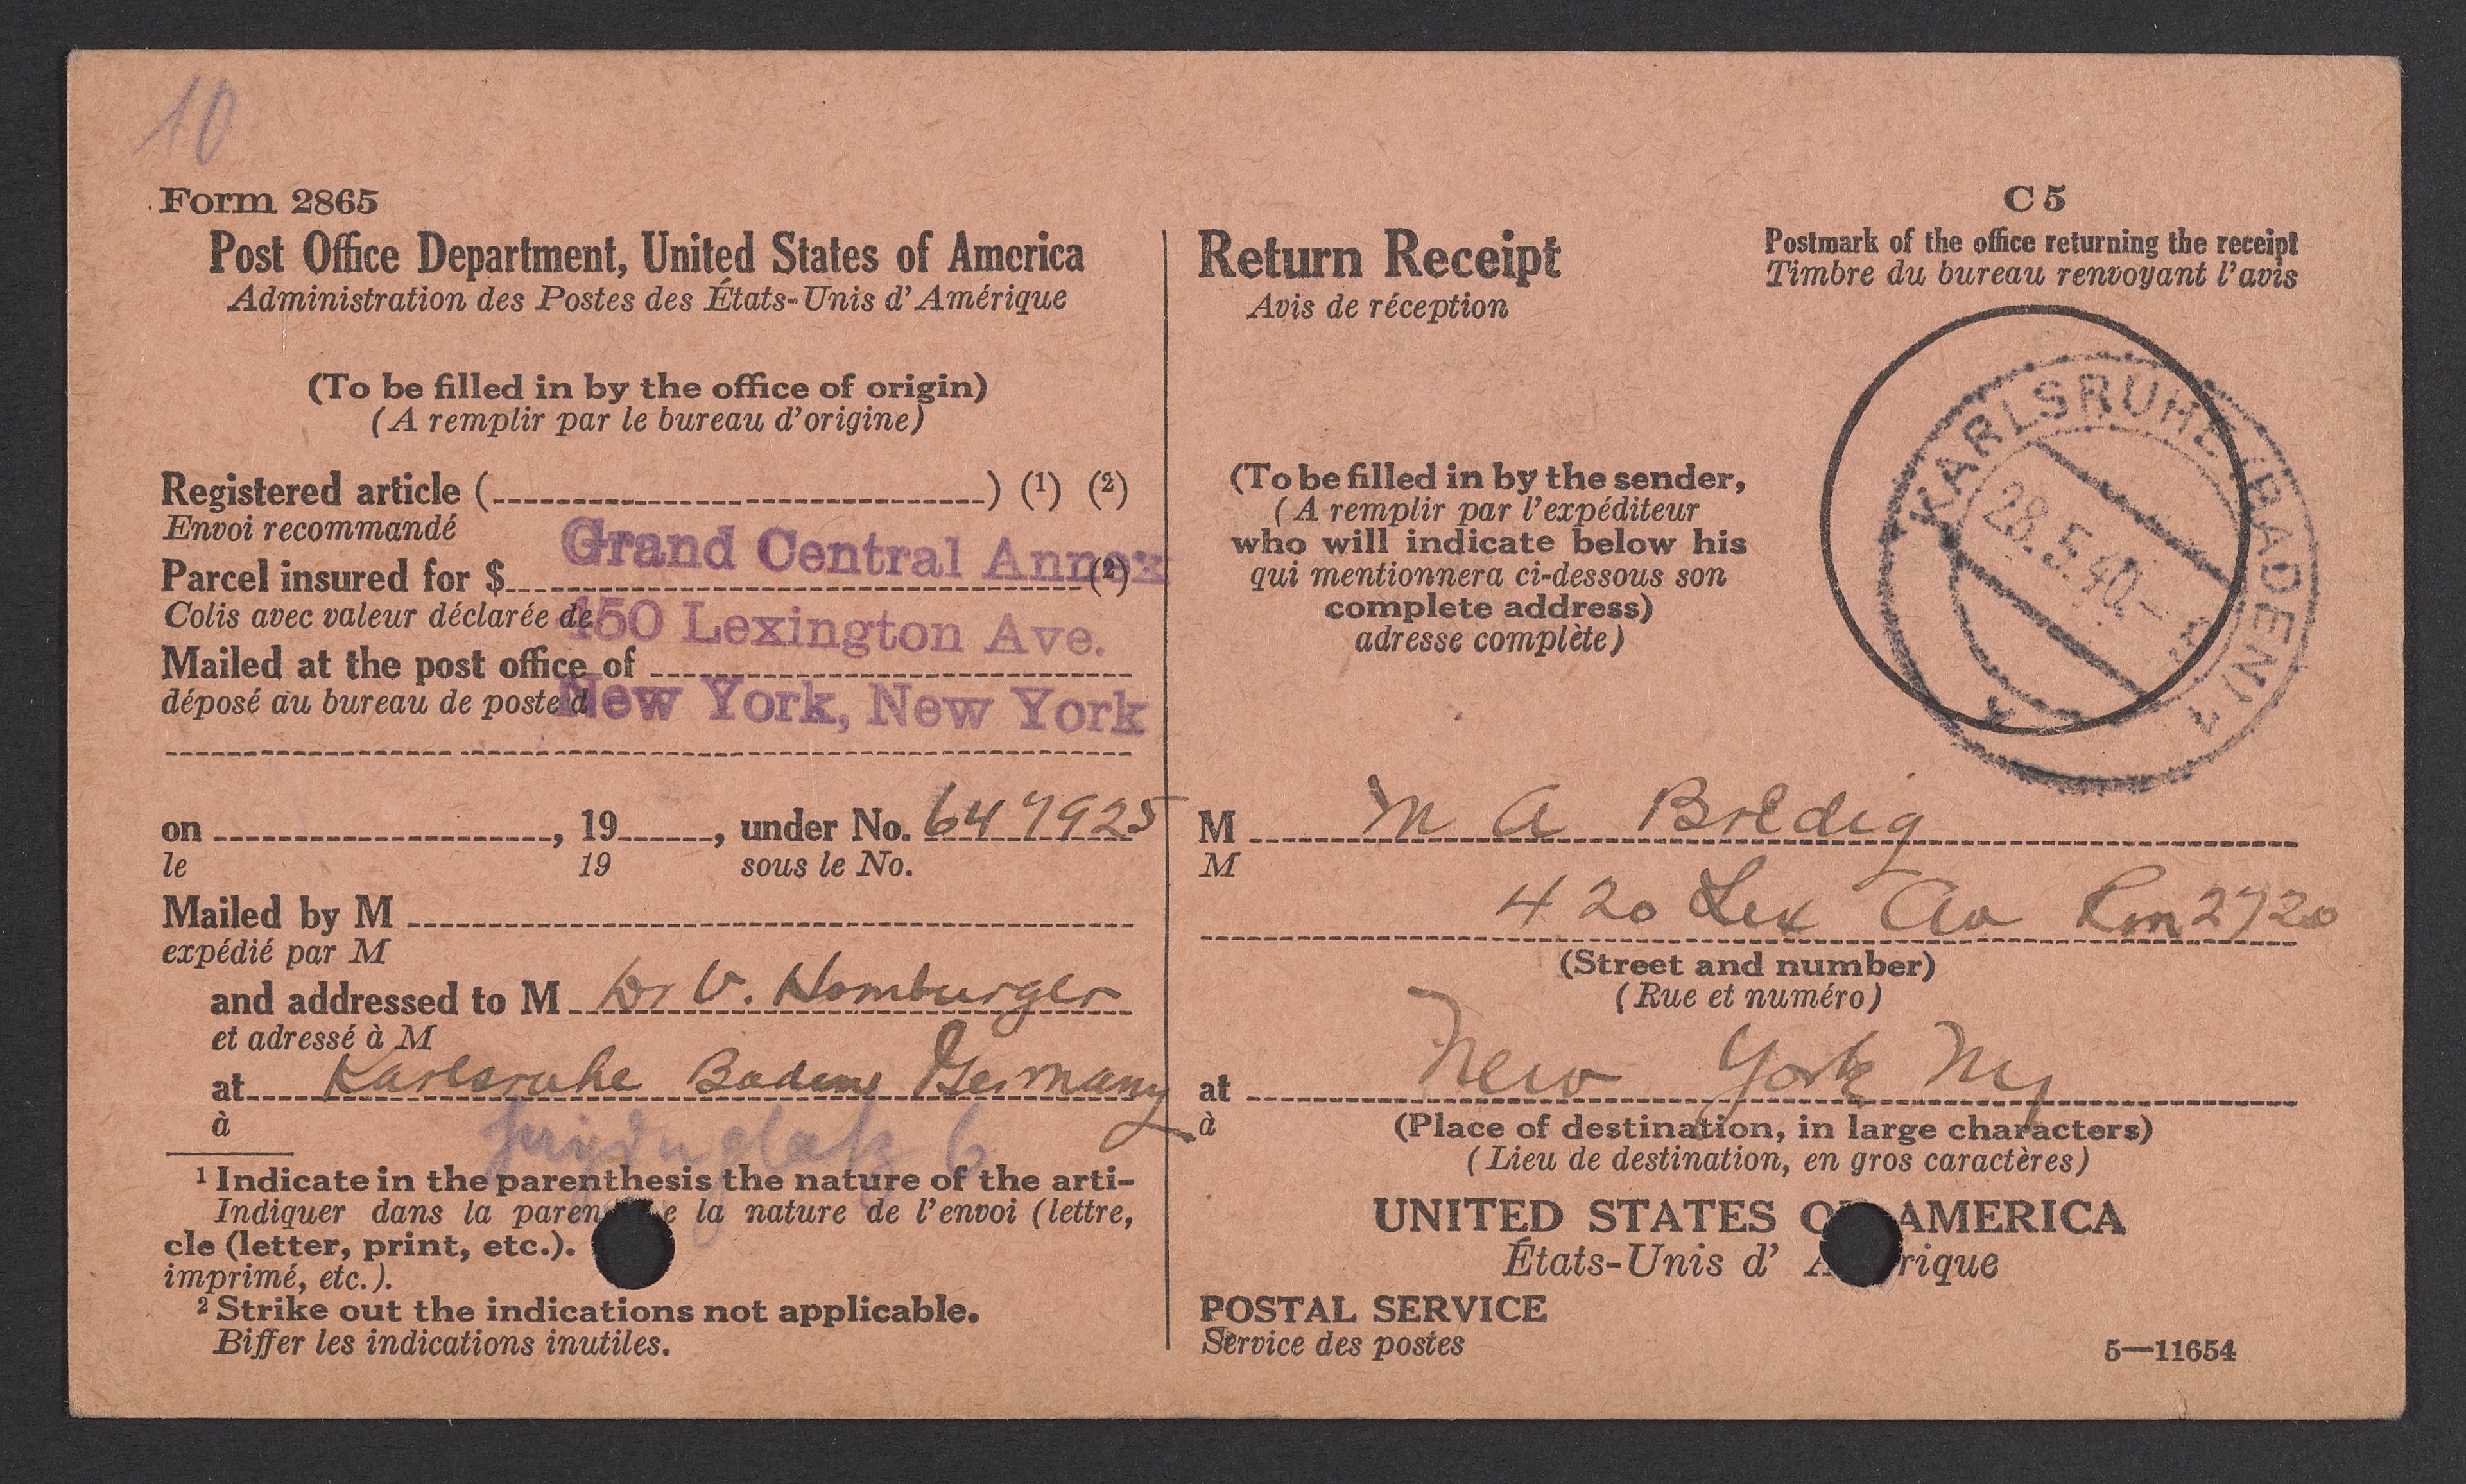 10
Form 2865
Post Office Department, United States of America
Administration des Postes des États-Unis d'Amérique
(To be filled in by the office of origin)
(A remplir par le bureau d'origine)
Registered article ( ) (1) (2)
Envoi recommandé
Grand Central Annex
Parcel insured for $ (2)
Colis avec valeur déclarée de
450 Lexington Ave.
Mailed at the post office of
déposé au bureau de poste d
New York, New York
on , 19 , under No. 647925
le 19 sous le No.
Mailed by M
expédié par M
and addressed to M Dr V. Homburger
et adressé à M
at Karlsruhe Baden Germany
à
6
1 Indicate in the parenthesis the nature of the arti-
Indiquer dans la paren e la nature de l'envoi (lettre,
cle (letter, print, etc.).
imprimé, etc.).
2 Strike out the indications not applicable.
Biffer les indications inutiles.
Return Receipt
Avis de réception
C 5
Postmark of the office returning the receipt
Timbre du bureau renvoyant l'avis
KARLSRUHE (BADEN) 1
28.5.40.-
(To be filled in by the sender,
(A remplir par l'expéditeur
who will indicate below his
qui mentionnera ci-dessous son
complete address)
adresse complète)
M M A Bredig
M
420 Lex Av Rm 2720
(Street and number)
(Rue et numéro)
at New York NY
à
(Place of destination, in large characters)
(Lieu de destination, en gros caractères)
UNITED STATES O AMERICA
États-Unis d' A rique
POSTAL SERVICE
Service des postes
5—11654